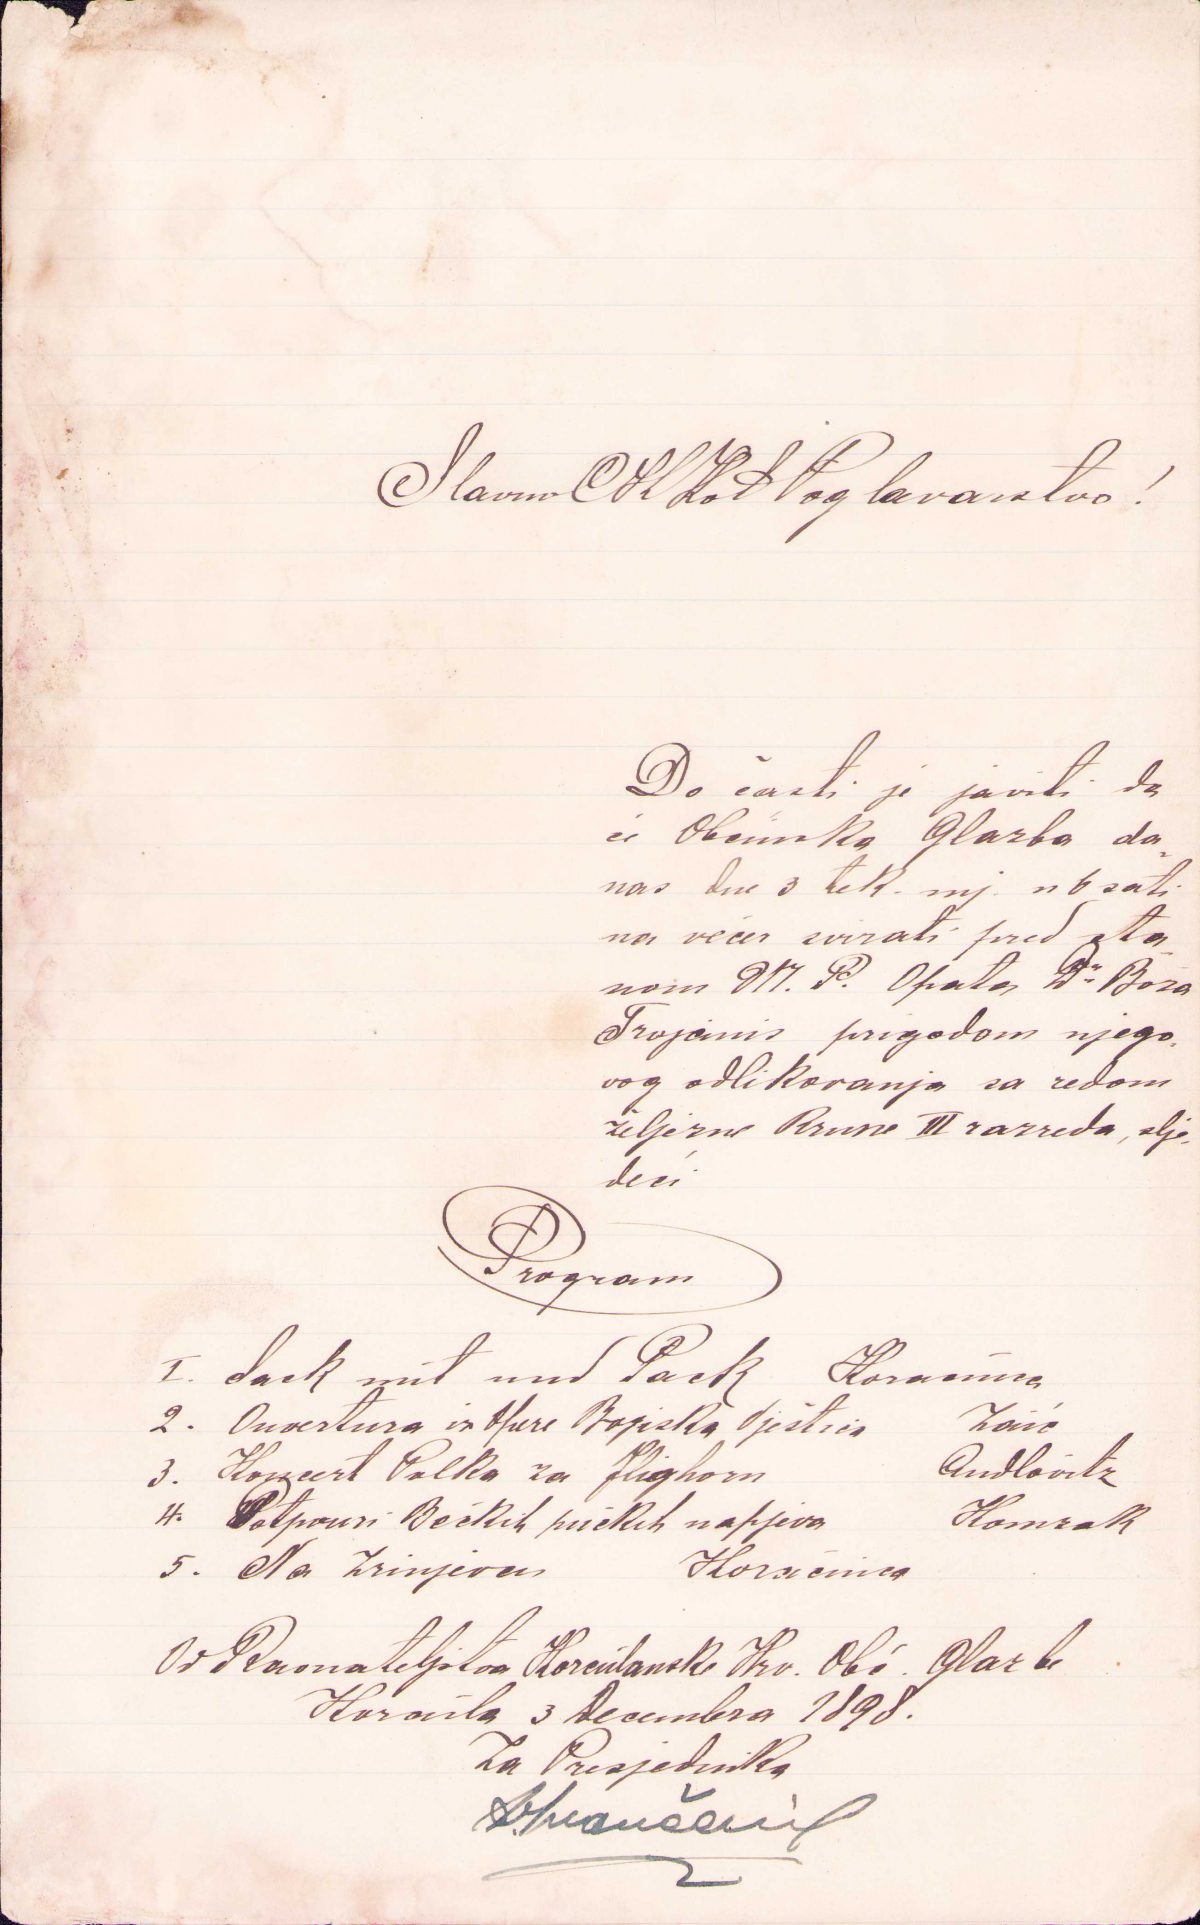 Slavno C K Kot Poglavarstvo!
Do časti je javiti da
će Obćinska Glazba da-
nas dne 3 tek. mj. u 6 sati
na večer svirati pred sta-
nom M. P. Opata Dr Boža
Trojanis prigodom njego-
vog odlikovanja sa redom
željezne Krune III razreda, slje-
deći
Program
I. Sack mit und Pack Koračina
2. Ouvertura iz Opere Bojiska Zaic
3. Koncert Polka za flighorn Andlovitz
4. Potpouri Bečkih pučkih napjeva Komzak
5. Na Zrinjevcu Koračina
Od Ravnateljstva Korčulanske Hrv. Obć. Glazbe
Korčula 3 Decembra 1898.
Za Presjednika